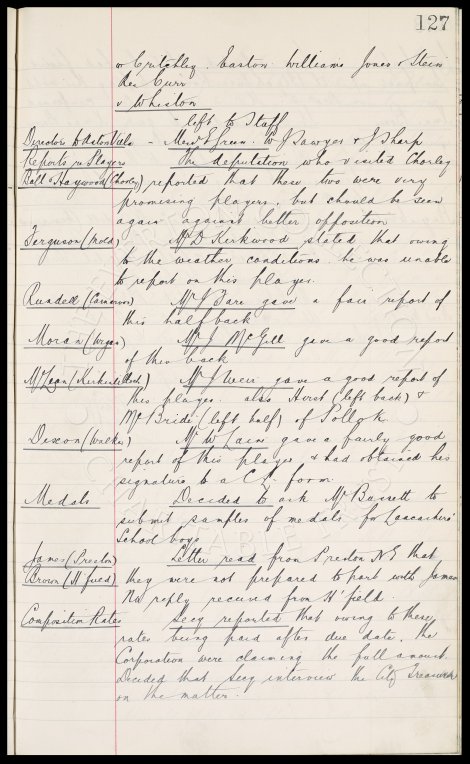 127
v Critchley. Easton Williams Jones & Stein
Res Curr
v Whiston
- left to Staff
Directors to Aston Villa - Messrs E Green. W J Sawyer & J Sharp
Reports re Players The deputation who visited Chorley
Ball & Haywood (Chorley) reported that these two were very
promising players, but should be seen
again against better opposition
Ferguson (Mold) Mr D Kirkwood stated that owing
to the weather conditions he was unable
to report on this player.
Rundell (Camerons) Mr J Fare gave a fair report of
this halfback
Moran (Wigan) Mr J McGill gave a good report
of this back
McLean (Kirkintilloch) Mr J Weir gave a good report of
this player. also Hurst (left back) &
McBride (left half) of Pollok
Dixon (Walker) Mr W Cain gave a fairly good
report of this player & had obtained his
signature to a C.L. form
Medals Decided to ask Mr Barrett to
submit samples of medals for Lancashire
School boys
James (Preston) Letter read from Preston N E that
Brown (H'field) they were not prepared to part with James
No reply received from H'field.
Composition Rates Secy reported that owing to these
rates being paid after due date, the
Corporation were claiming the full amount.
Decided that Secy interview the City Treasurer
on the matter.